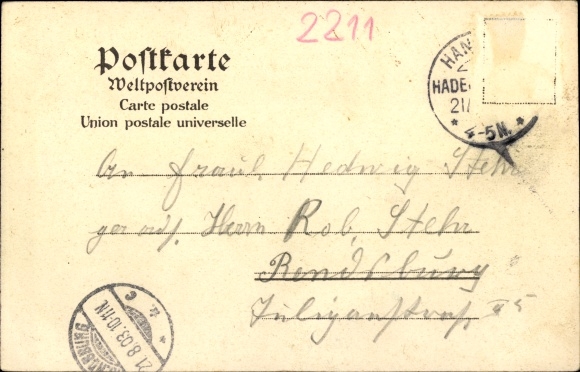 2211
Postkarte
Weltpostverein
Carte postale
Union postale universelle
HAN
HADE
21/
* 4-5N. *
An Fräul. Hedwig Stehr
Herrn Rob. Stehr
Rendsburg
21.8.03.10-11N.
* c